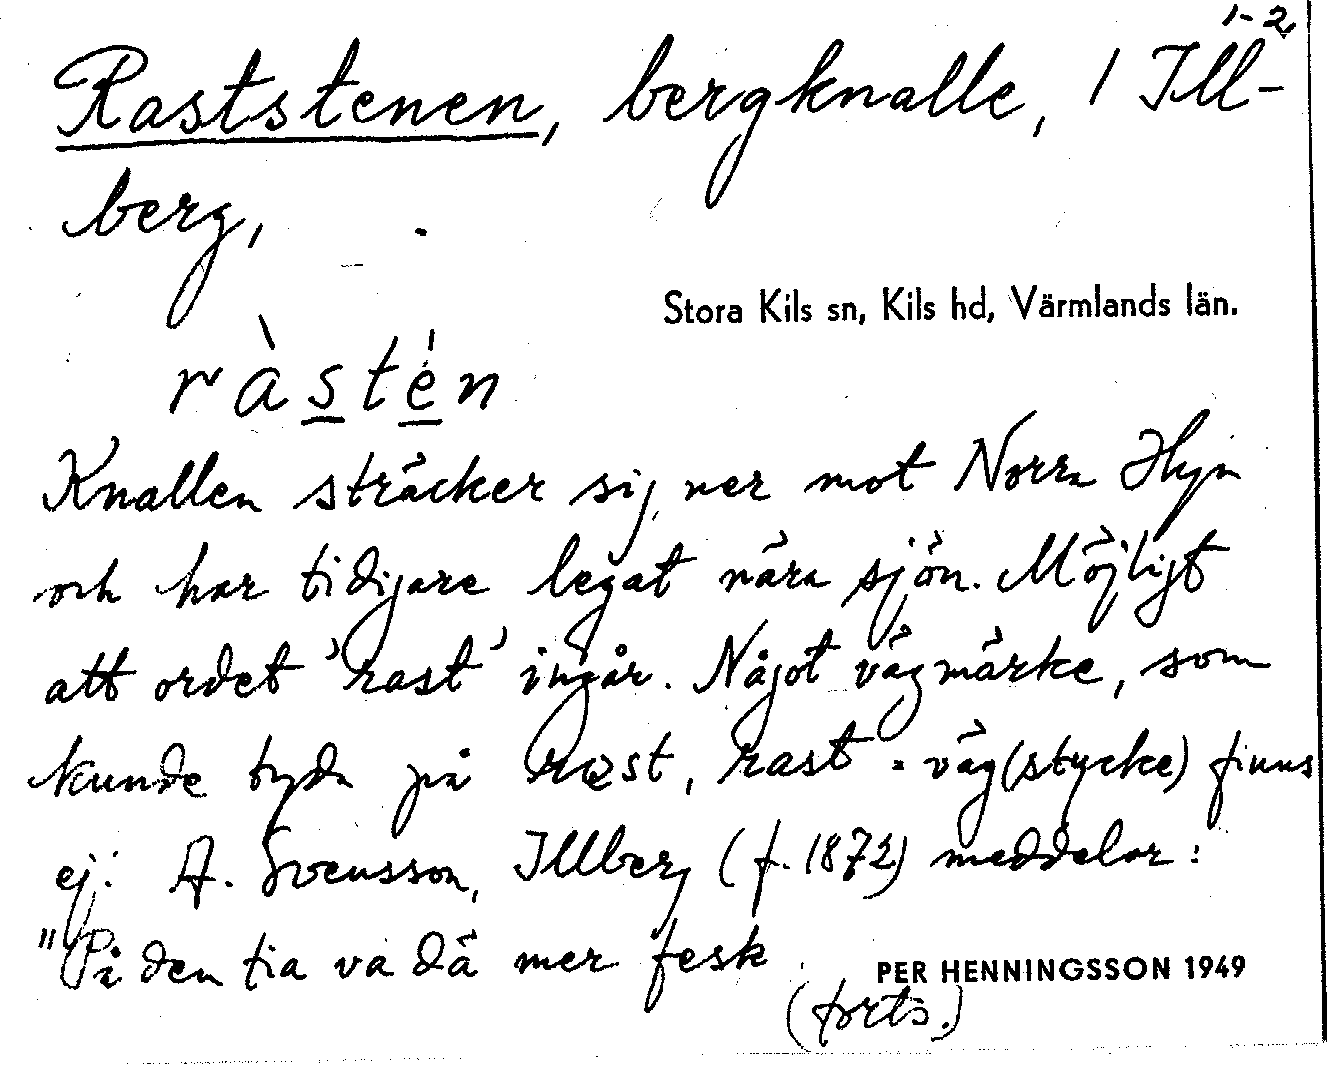 1-2
Raststenen, bergknalle, / Ill-
berg,
Stora Kils sn, Kils hd, Värmlands län.
ràstén
Knallen sträcker sig ner mot Norra Hyn
och har tidigare legat nära sjön. Möjligt
att ordet 'rast' ingår. Något vägmärke, som
kunde tyda på rast, rast = väg(stycke) finns
ej. A. Svensson, Illberg (f. 1872) meddelar:
"På den tia va dä mer fesk
PER HENNINGSSON 1949
(forts.)